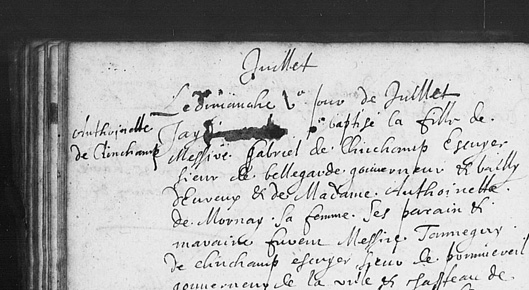 Juillet
Le dimanche Ve Jour de Juillet
Anthoinette
de Clinchamp
Jay baptisé la fille de
Messire Gabriel de Clinchamp Escuyer
Sieur de bellegarde gouverneur & bailly
dEvreux & de Madame Anthoinette
de Mornay sa femme. Ses parain &
maraine furent Messire Tanneguy
de Clinchamp escuyer sieur de
gouverneur de la ville & chasteau de